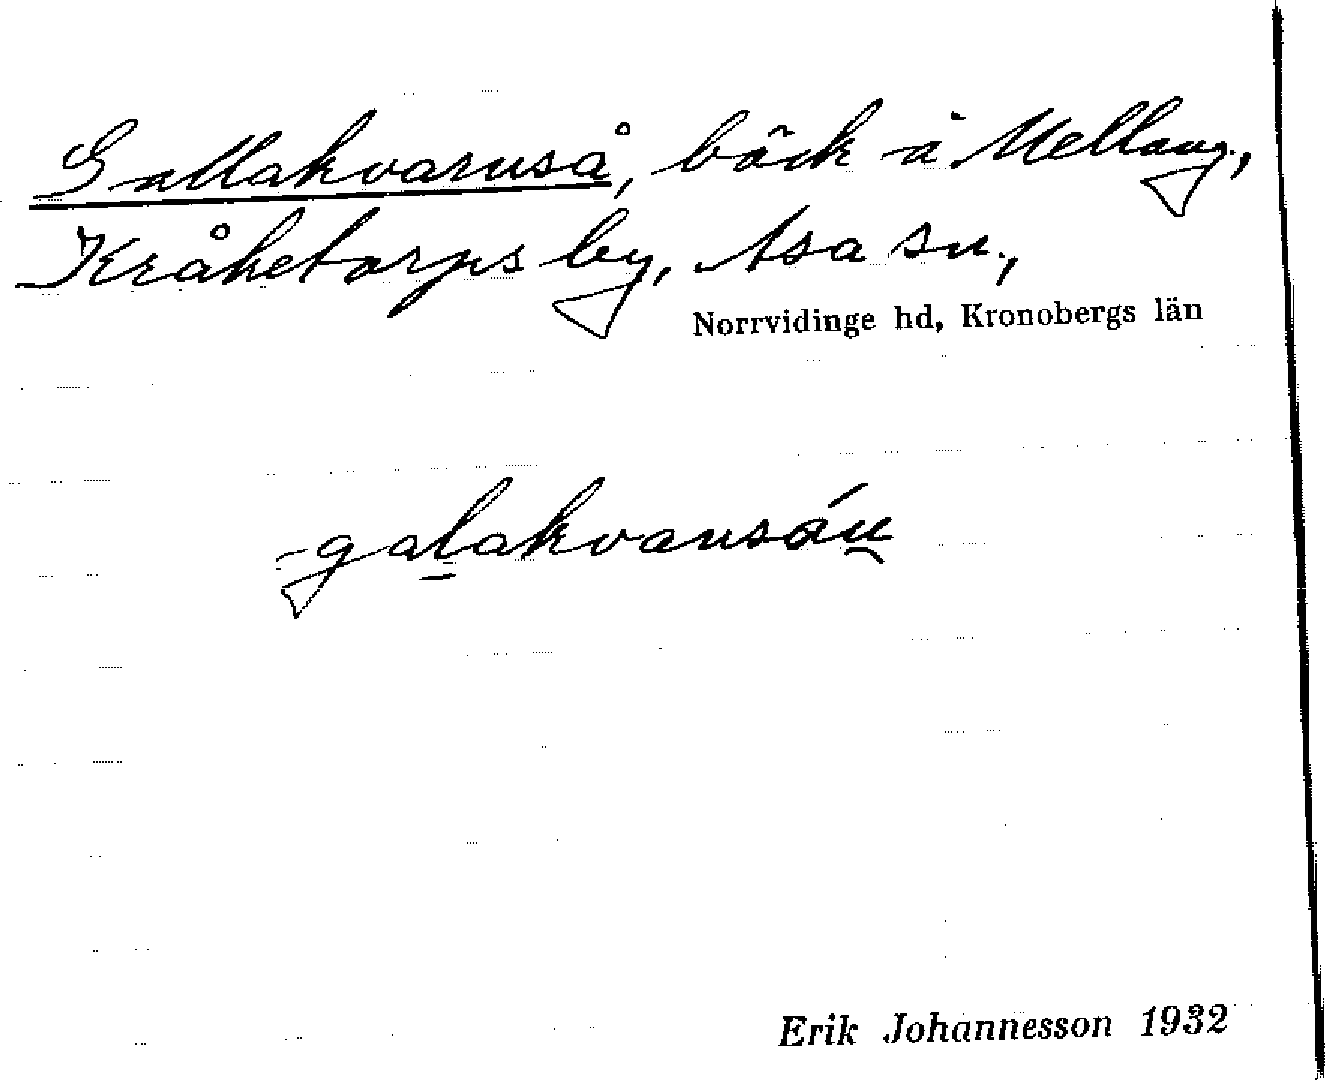 Gallakvarnså, bäck å Mellang.,
Kråketorps by, Asa sn.,
Norrvidinge hd, Kronobergs län
galakvansán
Erik Johannesson 1932